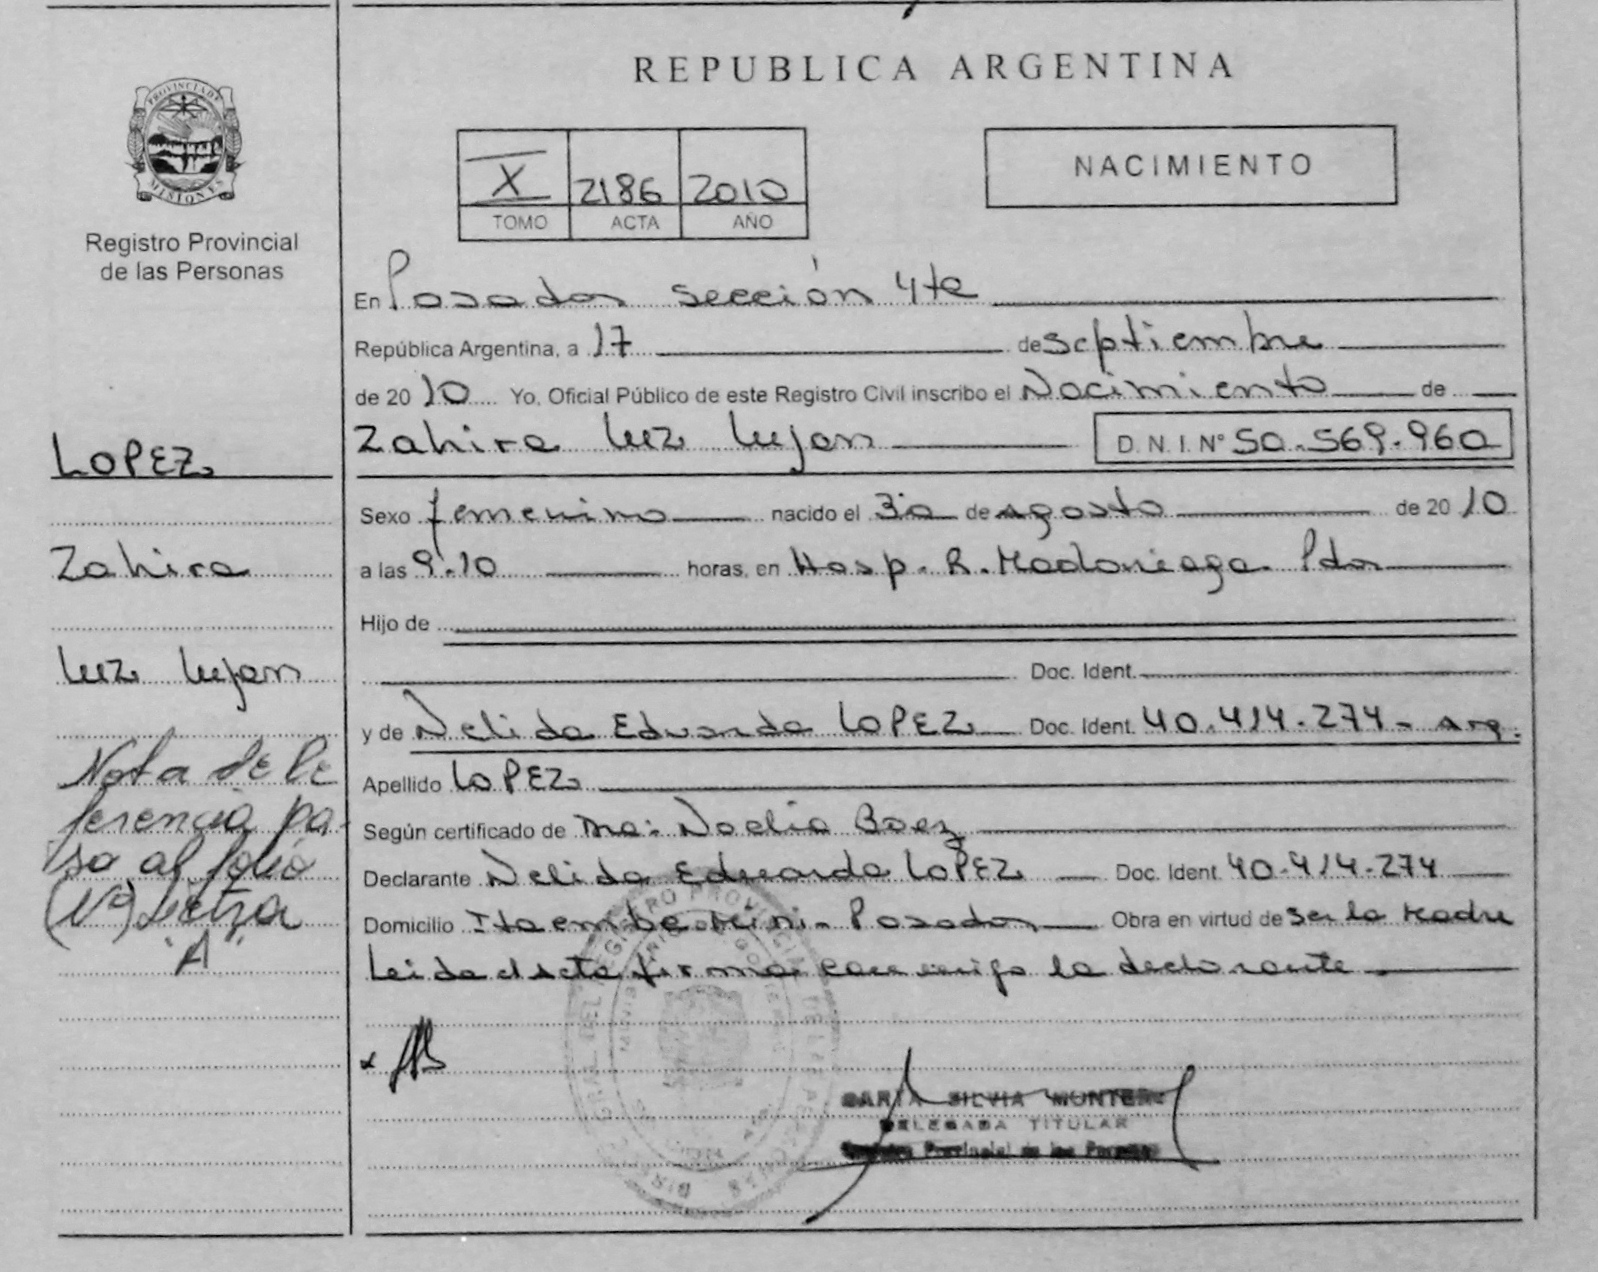 REPUBLICA ARGENTINA
PROVINCIA DE
MISIONES
Registro Provincial
de las Personas
X 2186 2010
TOMO ACTA AÑO
NACIMIENTO
En Posadas sección 4ta
República Argentina, a 17 de septiembre
de 2010 Yo, Oficial Público de este Registro Civil inscribo el Nacimiento de
Zahira Luz Lujan D. N. I. Nº 50.569.960
Sexo femenino nacido el 30 de agosto de 2010
a las 9.10 horas, en Hosp. R. Madariaga. Pdas
Hijo de
Doc. Ident.
y de Nelida Eduarda LOPEZ Doc. Ident. 40.414.274- Arg.
Apellido LOPEZ
Según certificado de Noelia Baez
Declarante Nelida Eduarda LOPEZ Doc. Ident. 40.414.274
Domicilio Itaembe Mini- Posadas Obra en virtud de ser la Madre
Leida el acta firma conmigo la declarante.
LOPEZ
Zahira
Luz Lujan
Nota de Re
ferencia pa
sa al folio
(Nº) Letra
"A"
SILVIA MUNTER
DELEGADA TITULAR
Registro Provincial de las Personas